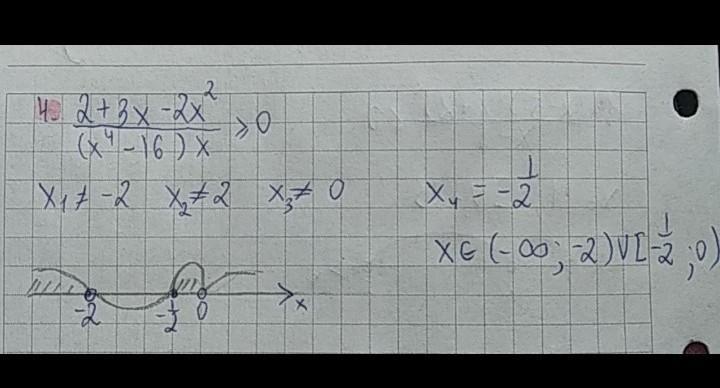 4. (2 + 3x - 2x²)/((x⁴ - 16)x) ≥ 0
x₁ ≠ -2 x₂ ≠ 2 x₃ ≠ 0 x₄ = -1/2
x ∈ (-∞; -2) ∪ [-1/2; 0)
-2 -1/2 0 x